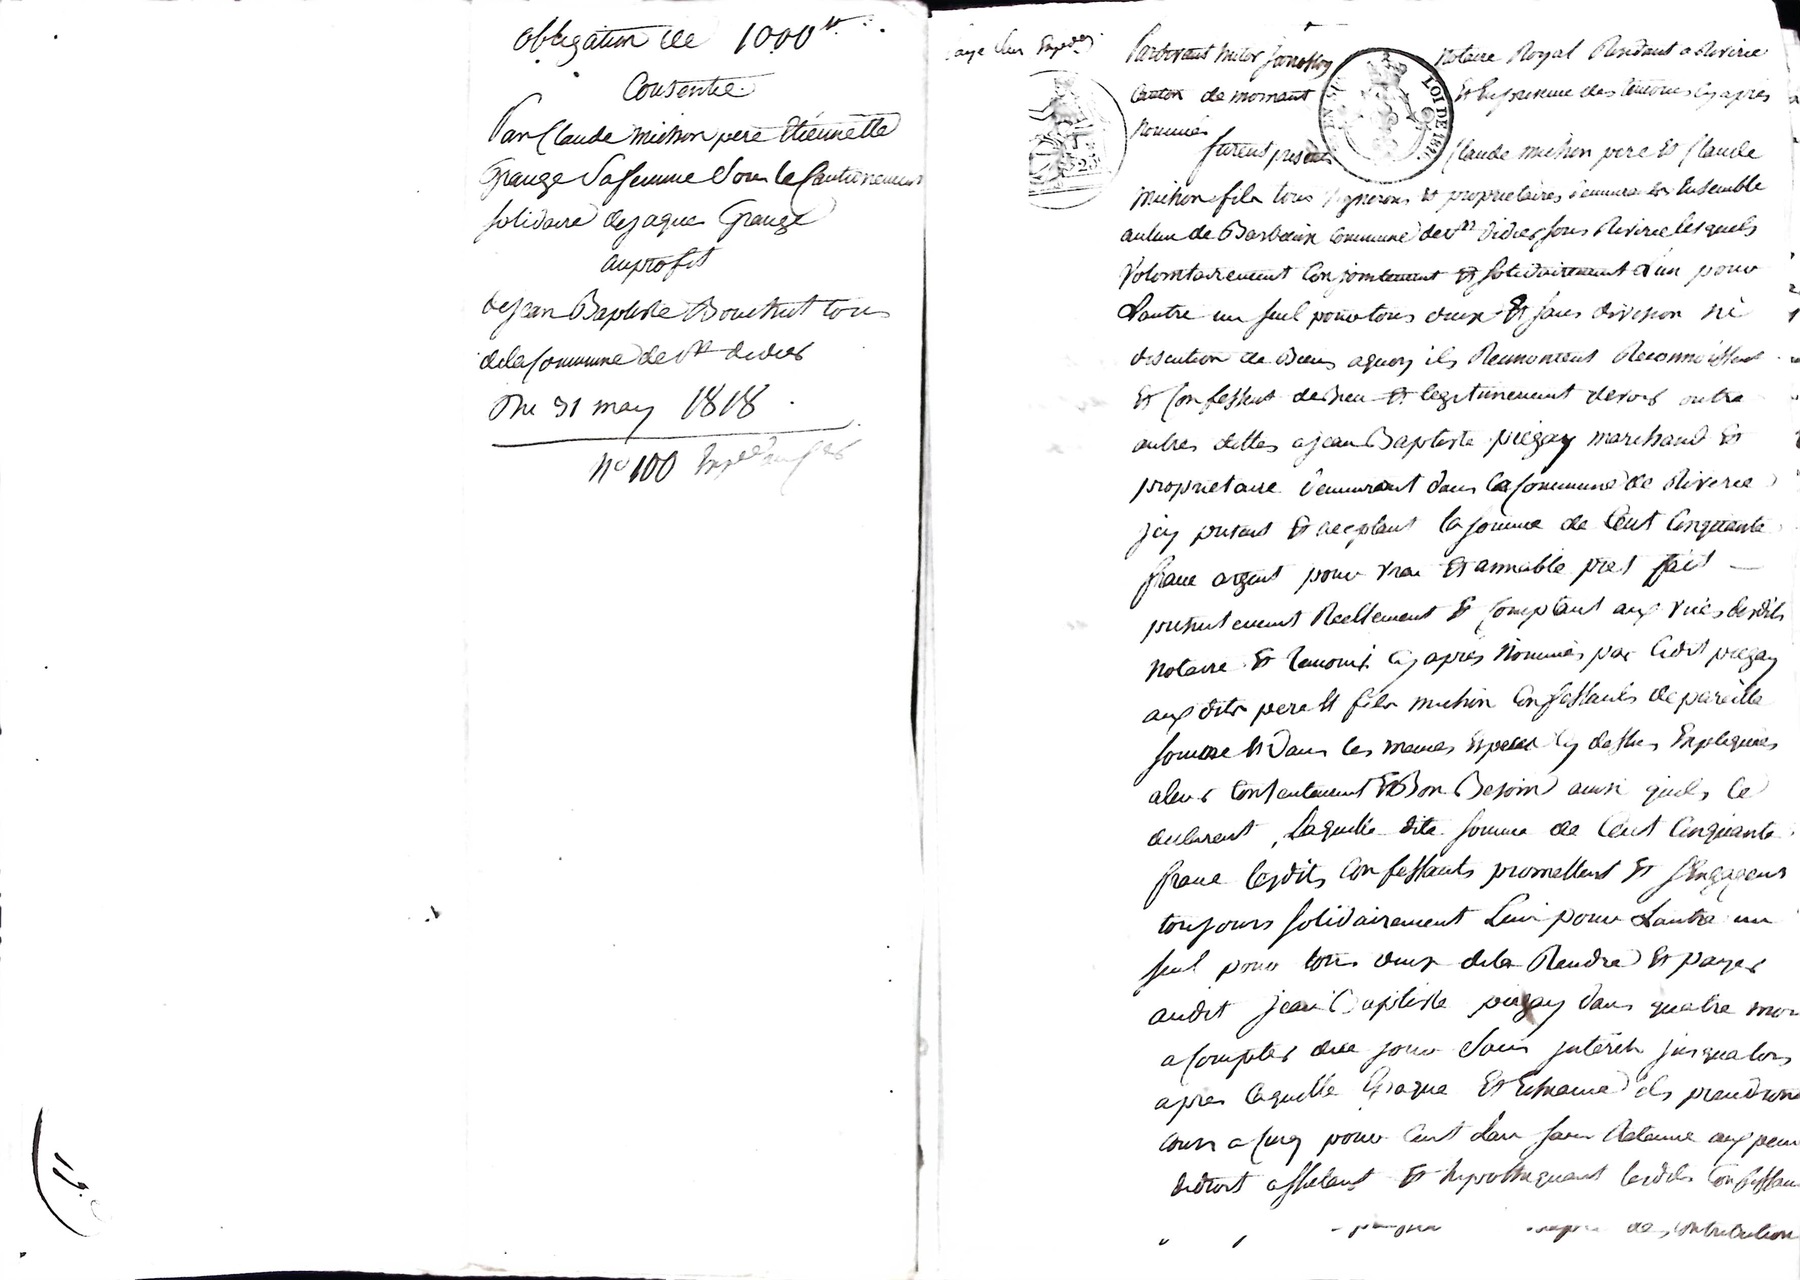 obligation de 1000 tt
Consentie
Par Claude michon pere Etiennette
Grange Sa femme Sous le Cautionnement
solidaire de jaques Grange
au profit
de jean Baptiste Bouchut tous
de la Commune de St didier
Du 31 may 1818
no 100
Pardevant notaire Royal Residant a Riverie
Canton de mornant Et En presence des temoins cy après
nommés
furent presents Claude michon pere Et Claude
michon fils tous vignerons et proprietaires demeurants Ensemble
au lieu de Commune de St didier sous Riverie lesquels
volontairement Conjointement et solidairement L'un pour
Lautre un seul pour tous deux Et sans division ni
discution de Biens aquoy ils Renoncent Reconnoissent
Et Confessent debien Et legitimement devoir outre
autres dettes a jean Baptiste piegay marchand Et
proprietaire demeurant dans la Commune de Riverie
jcy present Et acceptant la somme de Cent Cinquante
franc argent pour vrai Et amiable pret fait
presentement Reellement Et Comptant aux vües desdits
notaire Et temoins cy après nommés par ledit piegay
aux dits pere Et fils michon Confessants de pareille
somme Et dans les memes Especes cy dessus Expliquées
a leur Contentement Et Bon Besoin ainsi quils le
declarent, Laquelle dite somme de Cent Cinquante
franc lesdits Confessants promettent Et s'Engagent
toujours solidairement L'un pour Lautre un
seul pour tous deux de la Rendre Et payer
audit jean Baptiste piegay dans quatre mois
a Compter de ce jour sans jnterêts jusqualors
apres laquelle Epoque Et Echeance ils prendront
cours a Cinq pour Cent L'an sans Retenue aux peines
de droit affectant Et hypothequant lesdits Confessants
de Contribution
LOI DE 1816